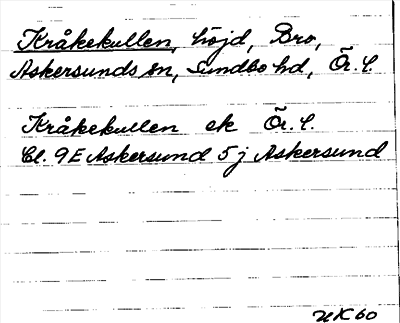 Kråkekullen, höjd, Bro,
Askersunds sn, Sundbo hd, Ör. l.
Kråkekullen ek Ör. l.
Bl. 9E Askersund 5j Askersund
UK60